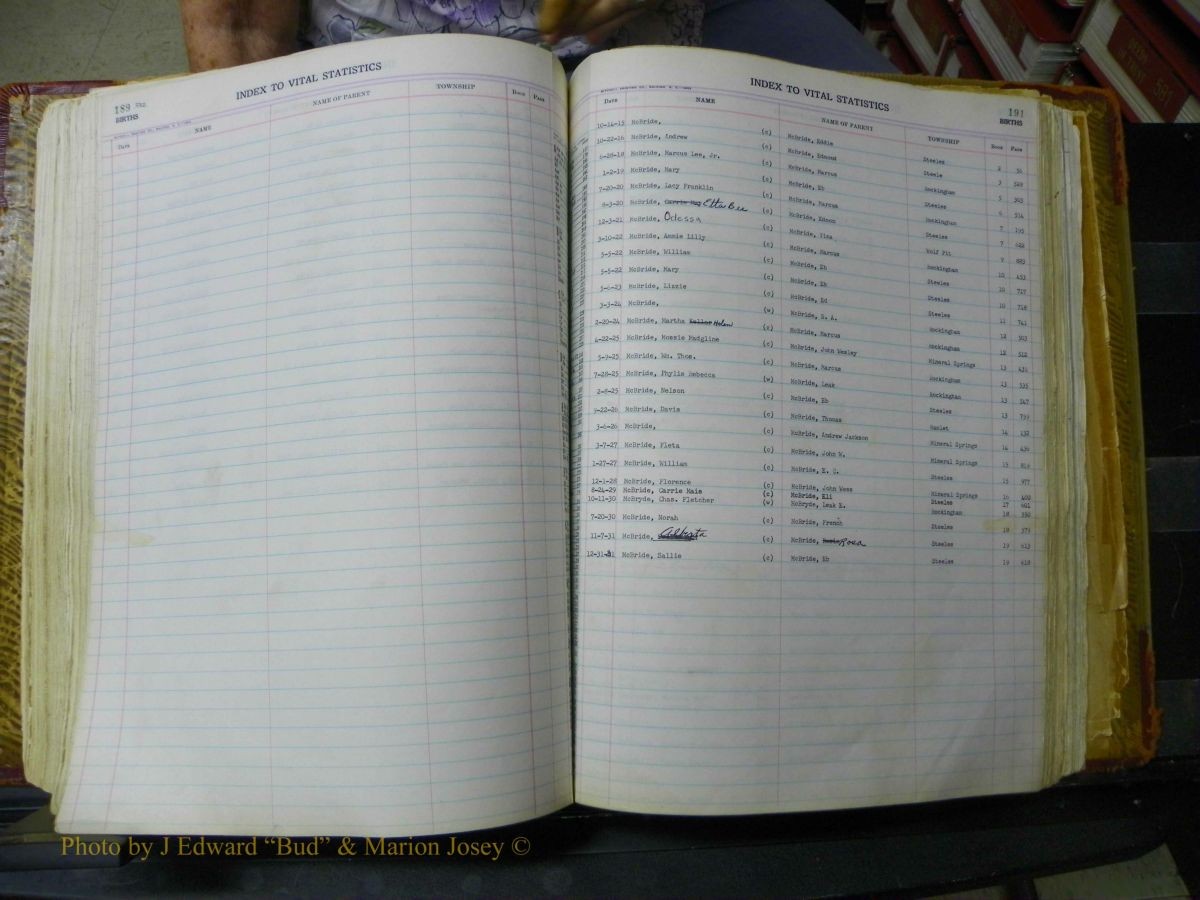 189 BIRTHS
INDEX TO VITAL STATISTICS
Date NAME NAME OF PARENT TOWNSHIP Book Page
INDEX TO VITAL STATISTICS
191 BIRTHS
Date NAME NAME OF PARENT TOWNSHIP Book Page
10-14-15 McBride, (c) McBride, Eddie Steeles 2 56
10-22-16 McBride, Andrew (c) McBride, Edmond Steele 3 528
6-28-18 McBride, Marcus Lee, Jr. (c) McBride, Marcus Rockingham 5 303
1-2-19 McBride, Mary (c) McBride, Eb Steeles 6 514
7-20-20 McBride, Lacy Franklin (c) McBride, Marcus Rockingham 7 195
8-3-20 McBride, Etta Bee (c) McBride, Edmon Steeles 7 628
12-3-21 McBride, Odessa (c) McBride, Vina Wolf Pit 9 885
3-10-22 McBride, Annie Lilly (c) McBride, Marcus Rockingham 10 453
5-5-22 McBride, William (c) McBride, Eb Steeles 10 717
5-5-22 McBride, Mary (c) McBride, Eb Steeles 10 718
1-6-23 McBride, Lizzie (c) McBride, Ed Steeles 11 741
3-3-24 McBride, (w) McBride, D. A. Rockingham 12 303
2-20-24 McBride, Martha Helen (c) McBride, Marcus Rockingham 12 512
4-22-25 McBride, Mossie Madgline (c) McBride, John Wesley Mineral Springs 13 431
5-9-25 McBride, Wm. Thos. (c) McBride, Marcus Rockingham 13 535
7-28-25 McBride, Phylis Rebecca (w) McBride, Leak Rockingham 13 547
2-8-25 McBride, Nelson (c) McBride, Eb Steeles 13 799
9-22-26 McBride, Davis (c) McBride, Thomas Hamlet 14 132
3-6-26 McBride, (c) McBride, Andrew Jackson Mineral Springs 14 436
3-7-27 McBride, Fleta (c) McBride, John W. Mineral Springs 15 816
1-27-27 McBride, William (c) McBride, E. C. Steeles 15 977
12-1-28 McBride, Florence (c) McBride, John Wess Mineral Springs 16 409
8-24-29 McBride, Carrie Mais (c) McBride, Eli Steeles 17 401
10-11-30 McBryde, Chas. Fletcher (w) McBryde, Leak E. Rockingham 18 350
7-20-30 McBride, Norah (c) McBride, French Steeles 18 373
11-7-31 McBride, Alberta (c) McBride, Rosa Steeles 19 613
12-31-31 McBride, Sallie (c) McBride, Eb Steeles 19 618
Photo by J Edward “Bud” & Marion Josey ©